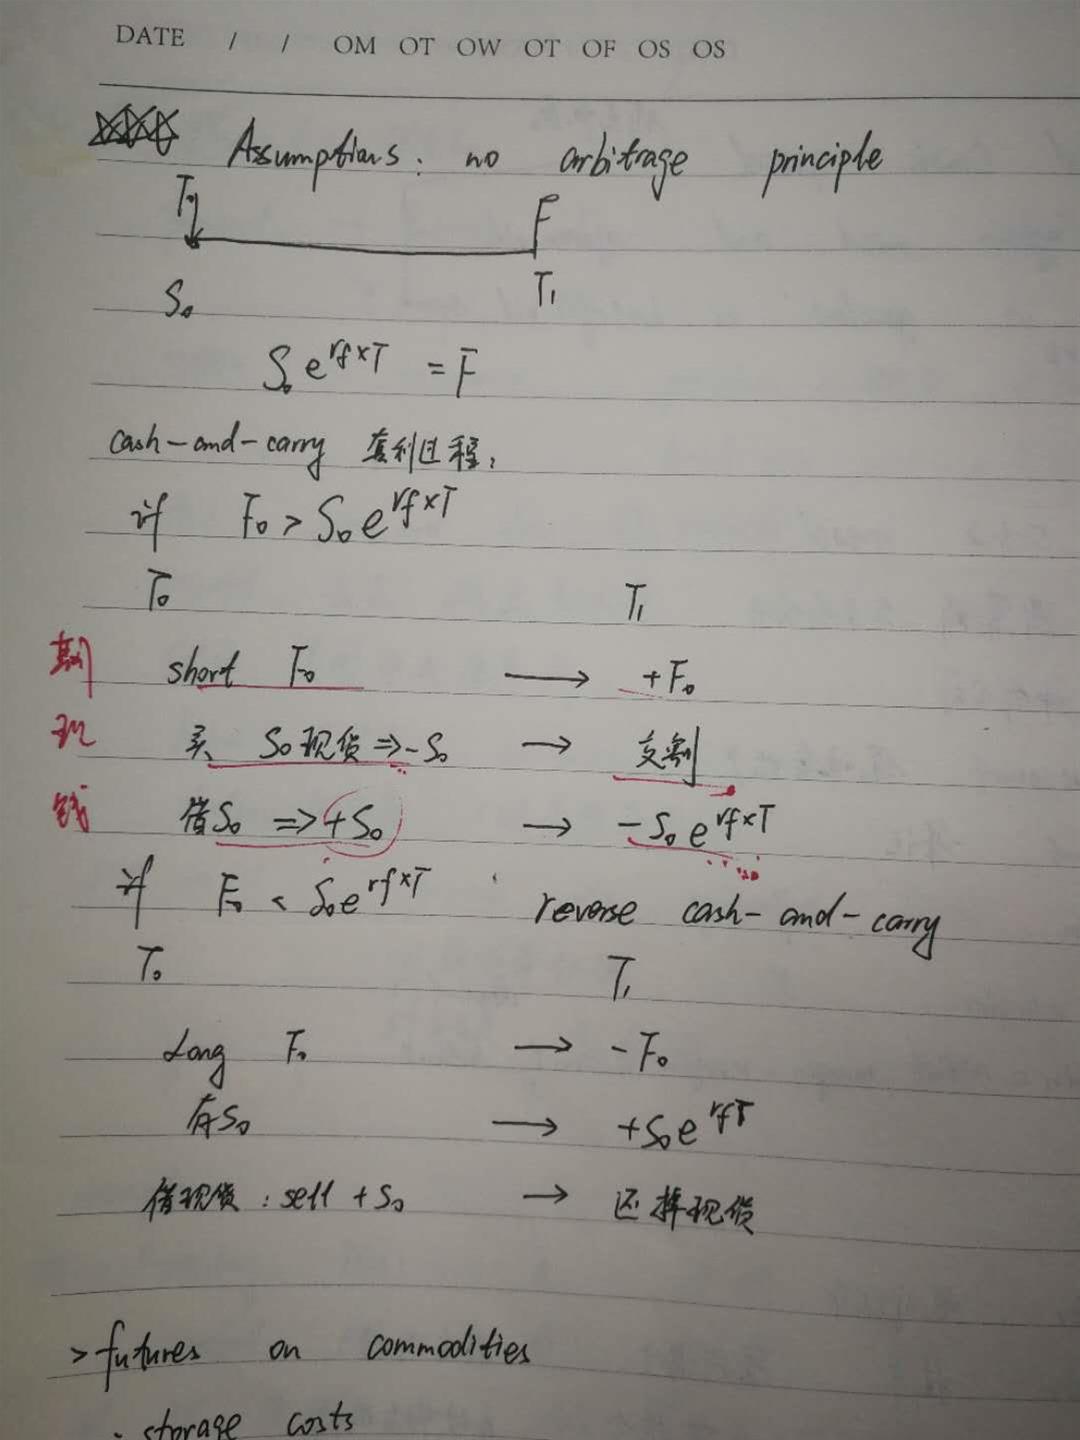 DATE / / OM OT OW OT OF OS OS
Assumptions: no arbitrage principle
T₀ F
S₀ T₁
S₀e^{rf×T} = F
cash-and-carry 套利过程：
if F₀ > S₀e^{rf×T}
T₀ T₁
期 short F₀ → +F₀
现 买 S₀现货 ⇒ -S₀ → 交割
钱 借S₀ ⇒ +S₀ → -S₀e^{rf×T}
if F₀ < S₀e^{rf×T} reverse cash-and-carry
T₀ T₁
Long F₀ → -F₀
存S₀ → +S₀e^{rfT}
借现货：sell +S₀ → 还掉现货
> futures on commodities
· storage costs